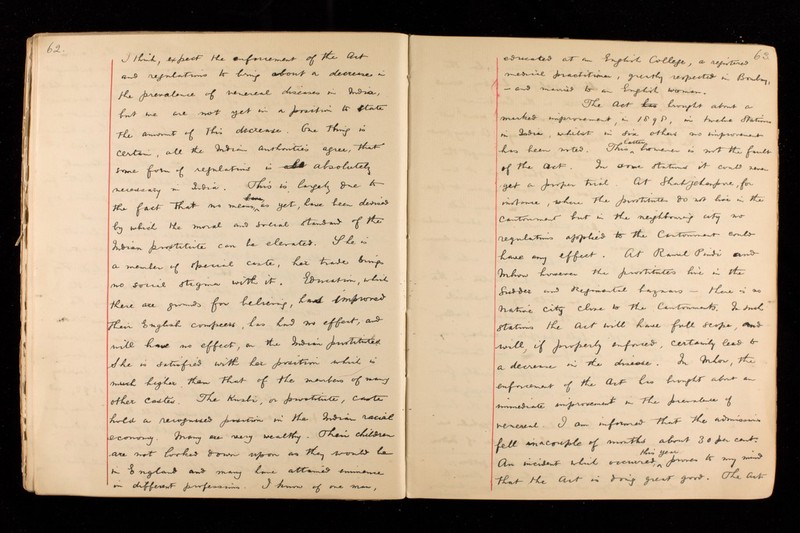 62.
I think, expect the enforcement of the Act
and regulations to bring about a decrease in
the prevalence of venereal diseases in India,
but we are not yet in a position to state
the amount of this decrease. One thing is
certain, all the Indian authorities agree, that
some form of regulations is absolutely
necessary in India. This is largely due to
the fact that no means, as yet, have been devised
by which the moral and social standard of the
Indian prostitute can be elevated. She is
a member of a special caste, her trade brings
no social stigma with it. Education, which
there are grounds for believing, has improved
their English compeers, has had no effect, and
will have no effect, on the Indian prostitute.
She is satisfied with her position which is
much higher than that of the members of many
other castes. The Kusbi, or prostitute, caste
holds a recognised position in the Indian racial
economy. Many are very wealthy. Their children
are not looked down upon as they would be
in England and many have attained eminence
in different professions. I know of one man,
63
educated at an English College, a registered
medical practitioner, greatly respected in Bombay,
- and married to an English woman.
The Act has brought about a
marked improvement, in 1898, in twelve Stations
in India, whilst in six others no improvement
has been noted. This latter however is not the fault
of the Act. In some stations it could never
get a proper trial. At Shahjehanpore, for
instance, where the prostitutes do not live in the
Cantonment but in the neighbouring city no
regulations applied to the Cantonment could
have any effect. At Rawul Pindi and
Mhow however the prostitutes live in the
Sudder and Regimental bazaars - there is no
native city close to the Cantonments. In such
stations the Act will have full scope, and
will, if properly enforced, certainly lead to
a decrease in the disease. In Mhow, the
enforcement of the Act has brought about an
immediate improvement in the prevalence of
venereal. I am informed that the admissions
fell in a couple of months about 30 per cent.
An incident which occurred this year, proves to my mind
that the Act is doing great good. The Act